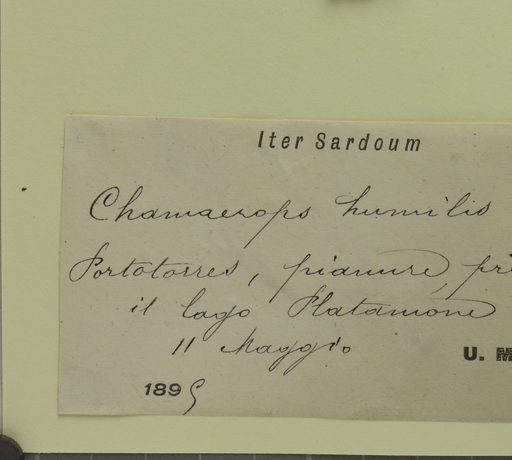 Iter Sardoum
Chamaerops humilis
Portotorres, pianure, pr
il lago Platamone
11 Maggio
U. M
1895